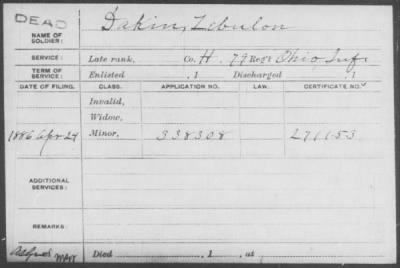 DEAD
NAME OF SOLDIER: Dakin, Zebulon
SERVICE: Late rank, Co. H. 79 Reg't Ohio Inf.
TERM OF SERVICE: Enlisted , 1 Discharged , 1
DATE OF FILING. CLASS. APPLICATION NO. LAW. CERTIFICATE NO.
Invalid,
Widow,
1886 Apr 24 Minor, 338308 271153
ADDITIONAL SERVICES:
REMARKS:
Died , 1 , at